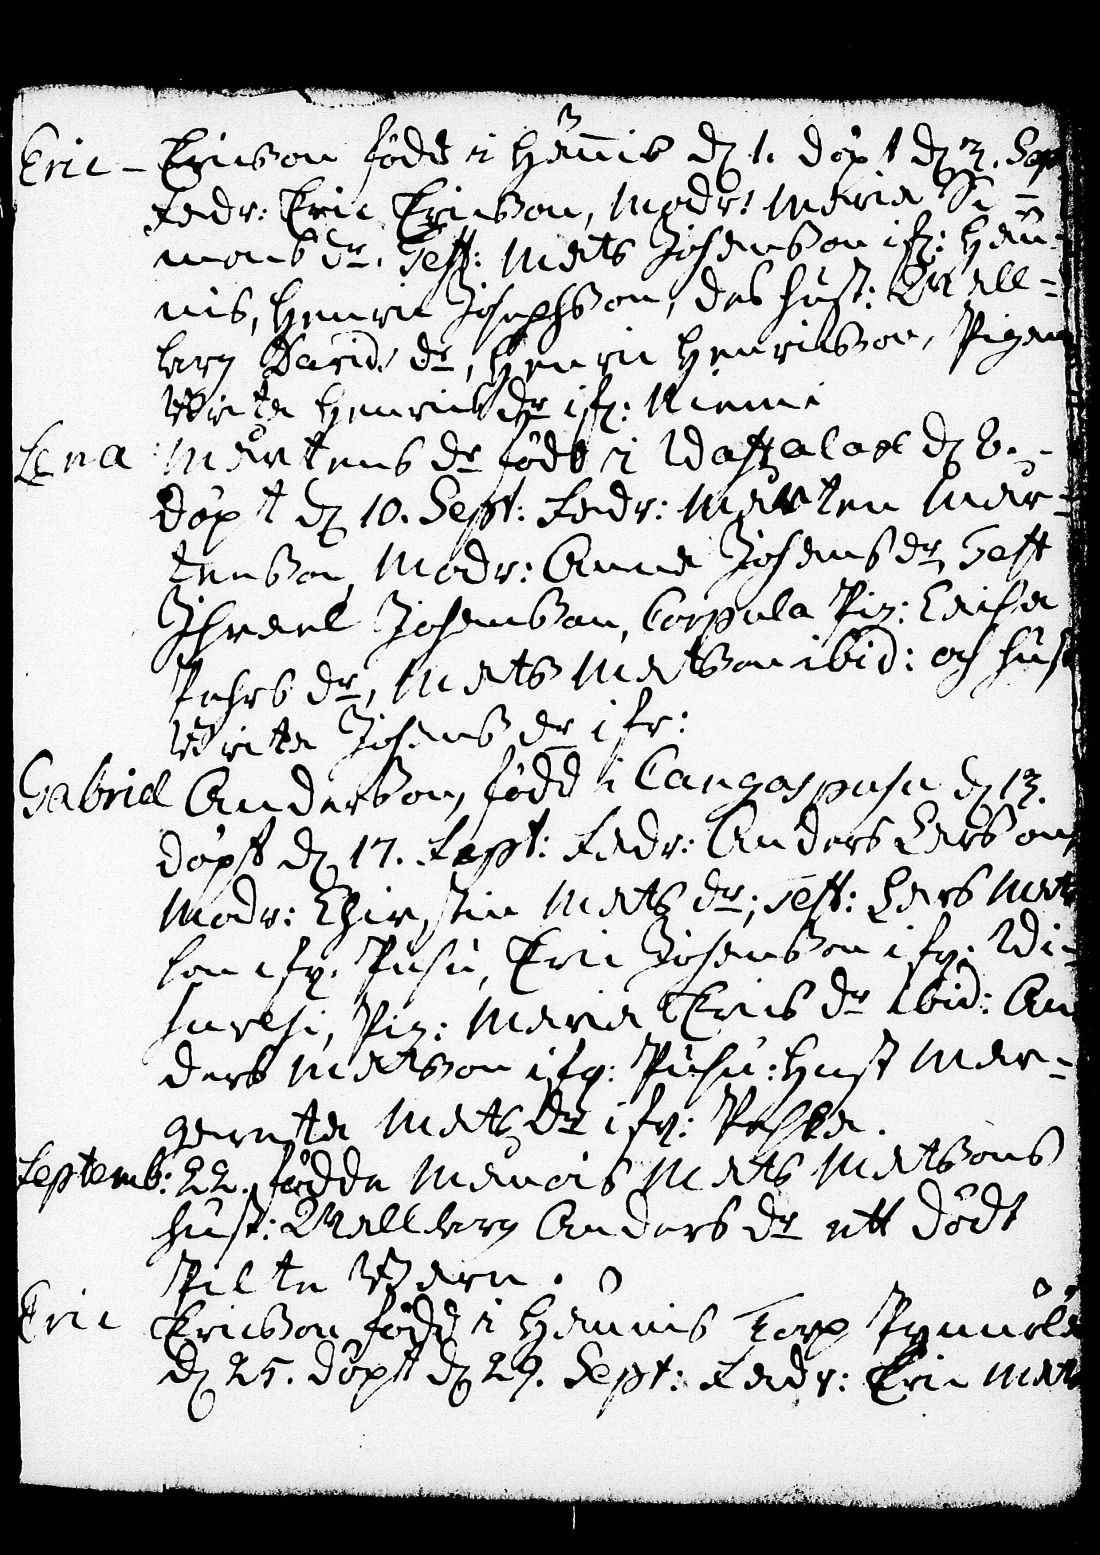 Eric - Ericsson född i Hännis d 1. döpt d 3. Sep
Fadr: Eric Ericsson, Modr: Maria Si=
mons dr. Test: Mats Josepsson ifr: Hän=
nis, Henric Josephsson, des hust: Wall=
borg Davids dr, Henric Henricsson, Pigan
Brita Henrics dr ifr: Niemi
Lena Mårtens dr född i d 8.
döpt d 10. Sept: Fadr: Mårten Mår=
tensson, Modr: Anna Josephs dr Test
Josepsson, Corpula Pig: Caisa
dr, Mats Matsson ibid: och hust
Brita Josephs dr ifr:
Gabriel Andersson, född i d 13.
döpt d 17. Sept: Fadr: Anders Larsson
Modr: Chirstin Mats dr; Test: Lars Mats
son ifr. Pusu, Eric Josepsson ifr:
Pig: Maria Erics dr ibid: An
ders Matsson ifr: Pusu: Hust Mar=
greta Mats dr ifr:
Septemb: 22. födde Mats Matssons
hust: Wallborg Anders dr ett dödt
Pilte Barn.
Eric Ericsson född i Hännis Torp
d 25. döpt d 29. Sept: Fadr: Eric Mats